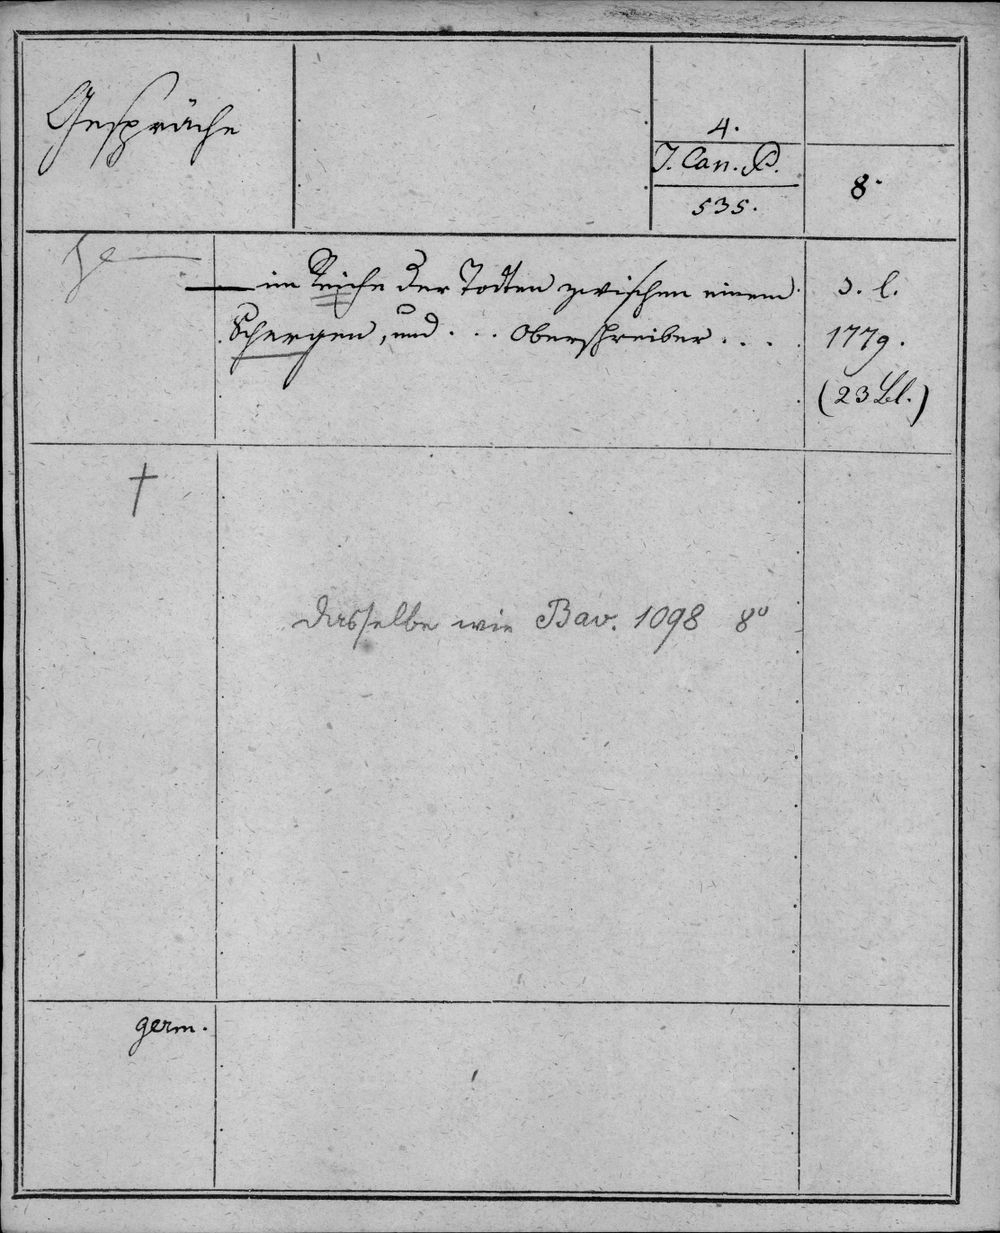 Gespräche
4.
J. Can. P.
535.
8.
— im Reiche der Todten zwischen einem
Schergen, und . . . Oberschreiber . . . .
s. l.
1779.
(23 Bl.)
†
Dasselbe wie Bav. 1098 8°
germ.